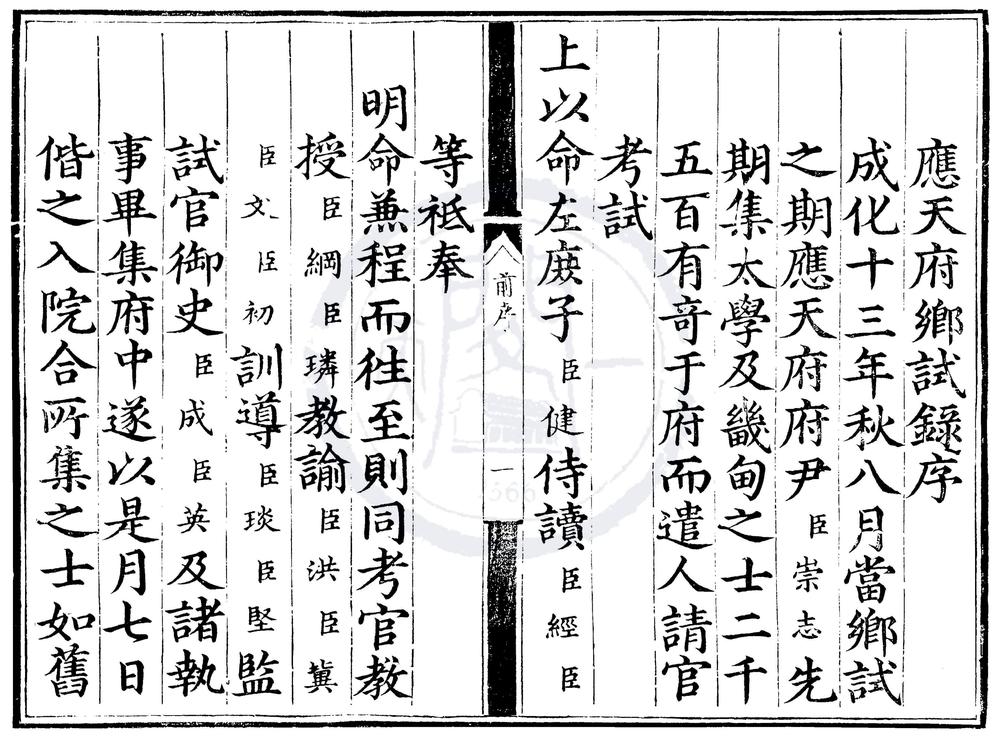 應天府鄉試錄序
成化十三年秋八月當鄉試
之期應天府府尹臣崇志先
期集太學及畿甸之士二千
五百有奇于府而遣人請官
考試
上以命左庶子臣健侍讀臣經臣
前序
一
等祗奉
明命兼程而往至則同考官教
授臣綱臣璘教諭臣洪臣冀
臣文臣初訓導臣琰臣堅監
試官御史臣成臣英及諸執
事畢集府中遂以是月七日
偕之入院合所集之士如舊